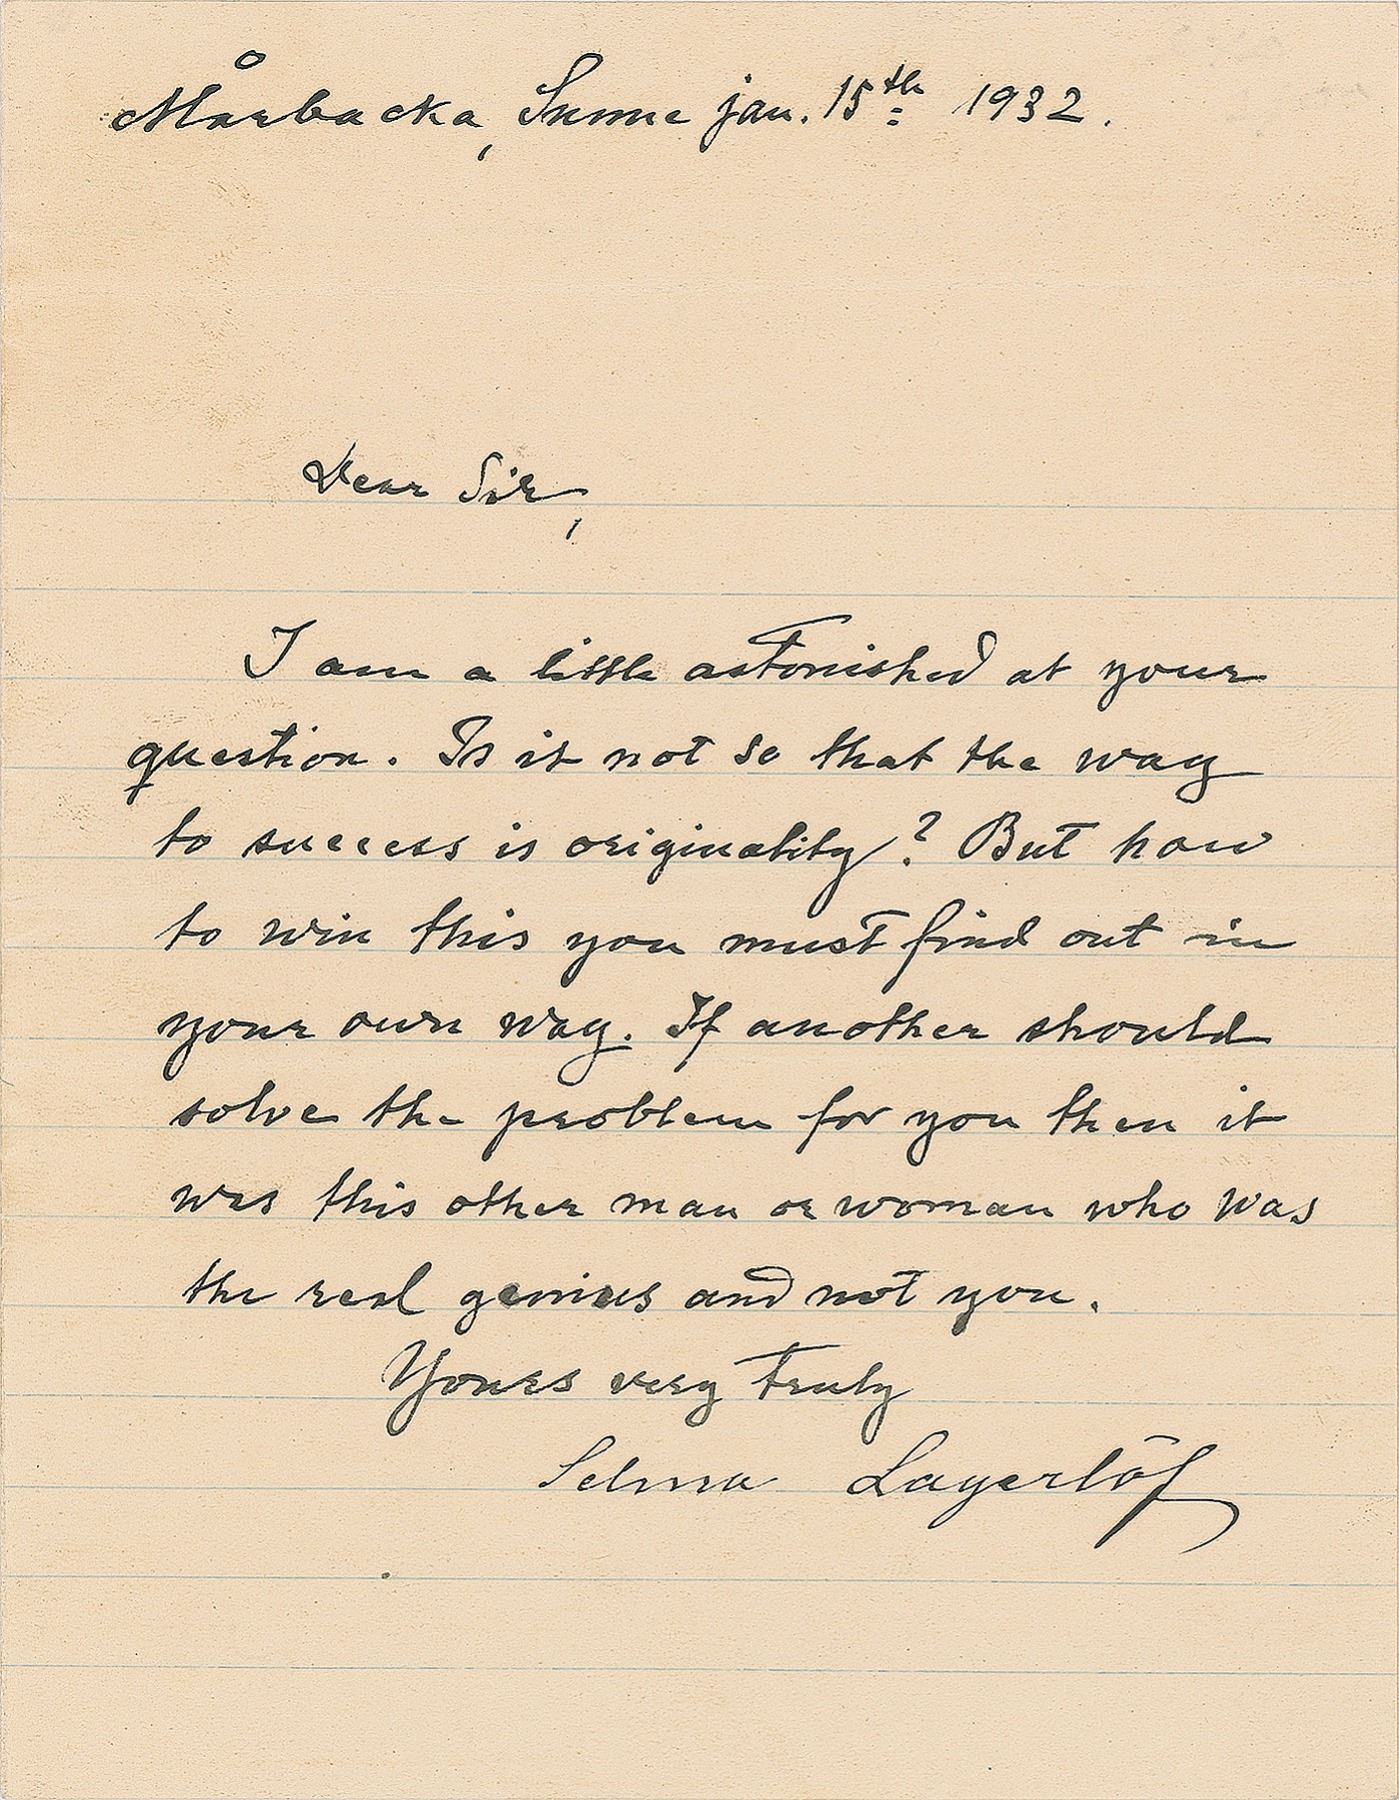 Mårbacka, Sunne jan. 15th 1932.
Dear Sir,
I am a little astonished at your
question. Is it not so that the way
to success is originality? But how
to win this you must find out in
your own way. If another should
solve the problem for you then it
was this other man or woman who was
the real genius and not you.
Yours very truly
Selma Lagerlöf